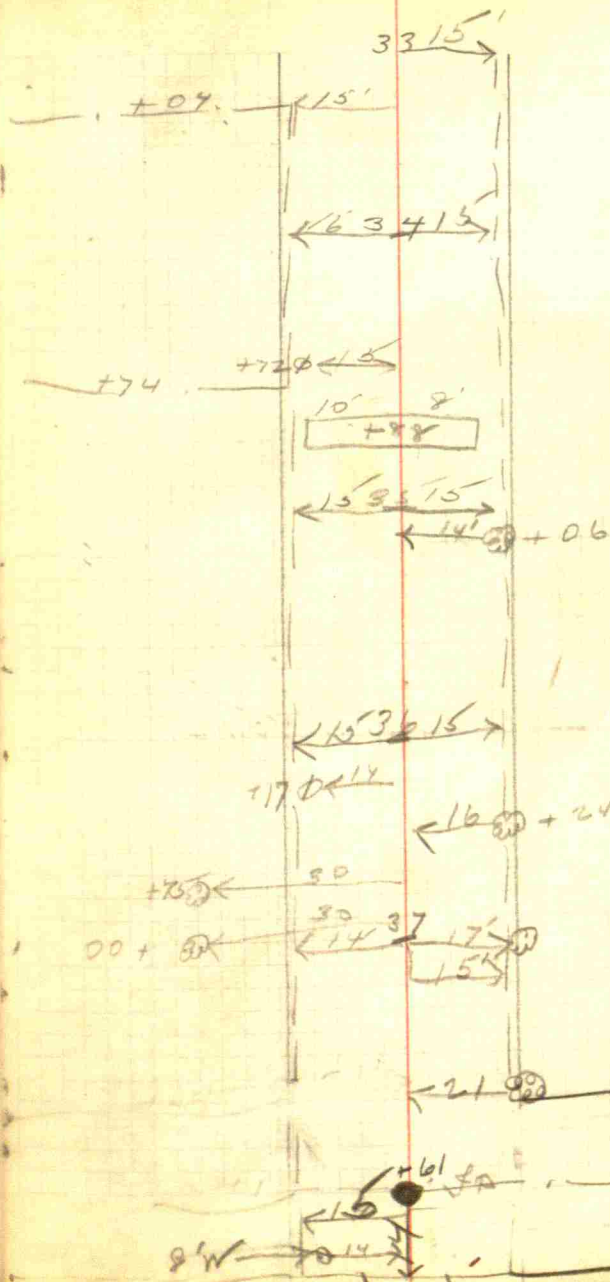 33 15'
+07 15'
15 34 15'
+72 15
+74
10' 8'
+88
15 35 15'
14' + 06
15 36 15
+17 14
16 + 24
+75 30
30
00 + 14 37 17'
15'
21
+61
15
8'W 14